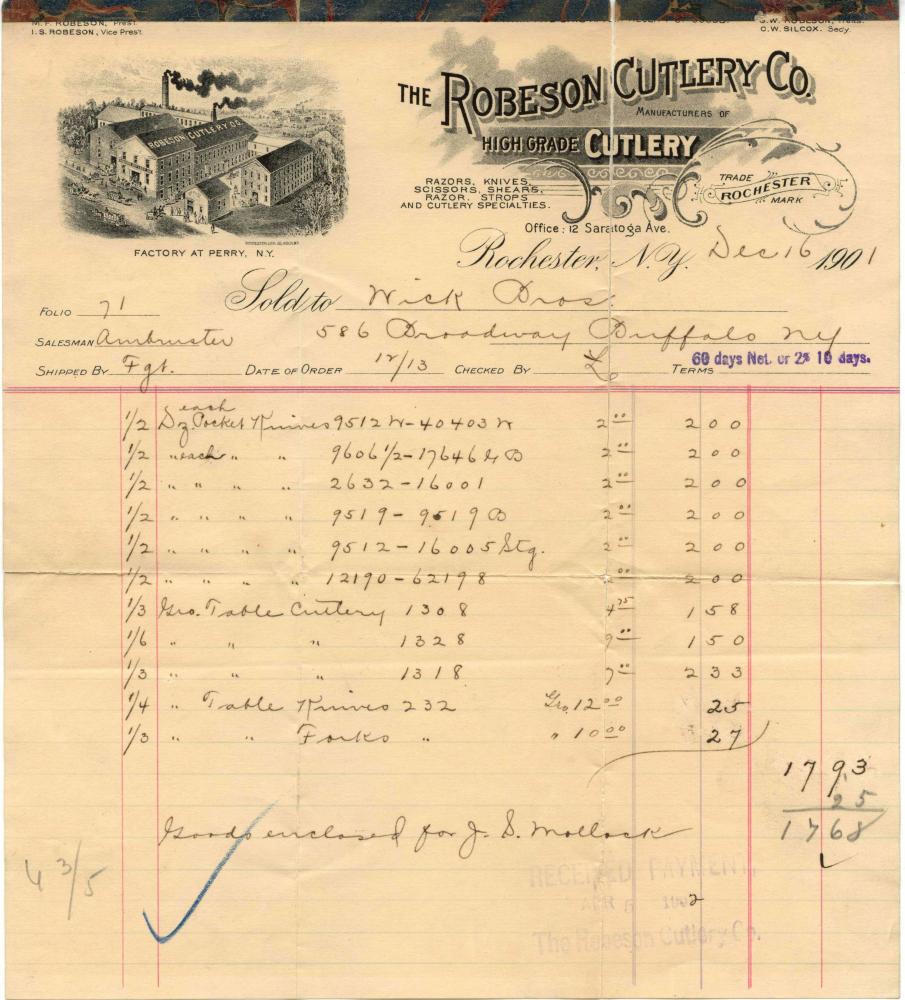 M. P. ROBESON, Prest.
I. S. ROBESON, Vice Prest.
C. W. SILCOX. Secy.
THE ROBESON CUTLERY CO.
MANUFACTURERS OF
HIGH GRADE CUTLERY
ROBESON CUTLERY CO.
RAZORS, KNIVES,
SCISSORS, SHEARS,
RAZOR STROPS
AND CUTLERY SPECIALTIES.
TRADE
ROCHESTER
MARK
Office: 12 Saratoga Ave.
FACTORY AT PERRY, N.Y.
Rochester, N.Y. Dec 16 1901
Sold to Wick Bros.
FOLIO 71
SALESMAN Ambruster 586 Broadway Buffalo NY
SHIPPED BY Fgt. DATE OF ORDER 12/13 CHECKED BY TERMS 60 days Net. or 2% 10 days.
each
1/2 Dz. Pocket Knives 9512 W-40403 W 2 00 2 00
1/2 " each " " 9606 1/2-17646 & B 2 00 2 00
1/2 " " " " 2632-16001 2 00 2 00
1/2 " " " " 9519-9519 B 2 00 2 00
1/2 " " " " 9512-16005 Stg. 2 00 2 00
1/2 " " " " 12190-62198 00 2 00
1/3 Gro. Table Cutlery 1308 4 75 1 58
1/6 " " " 1328 9 00 1 50
1/3 " " " 1318 7 00 2 33
1/4 " Table Knives 232 Gro. 12 00 25
1/3 " " Forks " " 10 00 27
17 93
25
17 68
Goods enclosed for J. S. Mollock
4 3/5
RECEIVED PAYMENT,
APR 5 1902
The Robeson Cutlery Co.